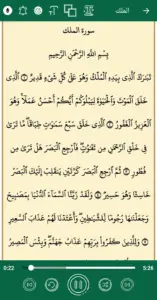 الملك
سورة الملك
بِسْمِ اللَّهِ الرَّحْمَنِ الرَّحِيمِ
تَبَارَكَ الَّذِي بِيَدِهِ الْمُلْكُ وَهُوَ عَلَى كُلِّ شَيْءٍ قَدِيرٌ ١ الَّذِي
خَلَقَ الْمَوْتَ وَالْحَيَاةَ لِيَبْلُوَكُمْ أَيُّكُمْ أَحْسَنُ عَمَلًا وَهُوَ
الْعَزِيزُ الْغَفُورُ ٢ الَّذِي خَلَقَ سَبْعَ سَمَاوَاتٍ طِبَاقًا مَّا تَرَى
فِي خَلْقِ الرَّحْمَنِ مِن تَفَاوُتٍ فَارْجِعِ الْبَصَرَ هَلْ تَرَى مِن
فُطُورٍ ٣ ثُمَّ ارْجِعِ الْبَصَرَ كَرَّتَيْنِ يَنقَلِبْ إِلَيْكَ الْبَصَرُ
خَاسِئًا وَهُوَ حَسِيرٌ ٤ وَلَقَدْ زَيَّنَّا السَّمَاءَ الدُّنْيَا بِمَصَابِيحَ
وَجَعَلْنَاهَا رُجُومًا لِّلشَّيَاطِينِ وَأَعْتَدْنَا لَهُمْ عَذَابَ السَّعِيرِ
٥ وَلِلَّذِينَ كَفَرُوا بِرَبِّهِمْ عَذَابُ جَهَنَّمَ وَبِئْسَ الْمَصِيرُ
0:22 5:26